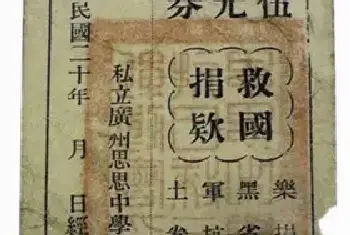 伍元券
救國
捐欵
樂捐
黑省
軍抗
土
私立廣州思思中學
民國二十年 月 日經